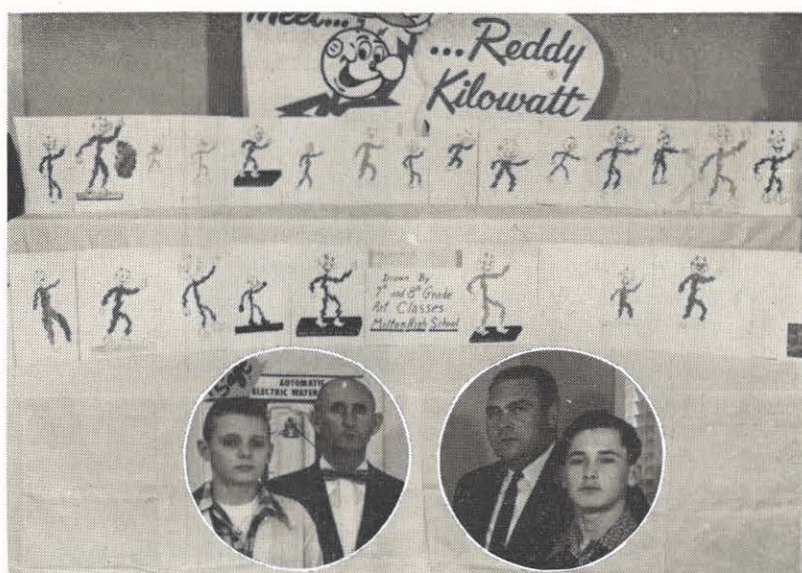 Meet...
...Reddy
Kilowatt
Drawn By
7th and 8th Grade
Art Classes
Milton High School
Says
AUTOMATIC
ELECTRIC WATER